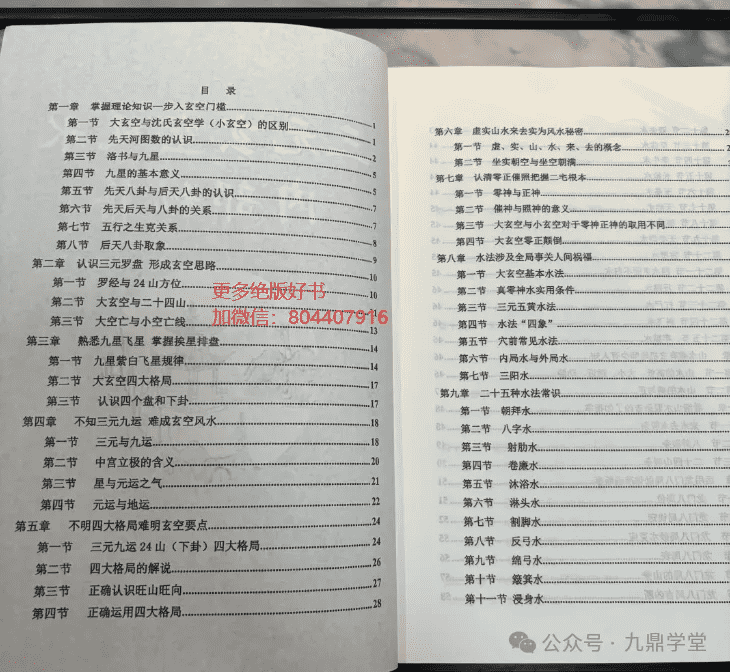 目 录
第一章 掌握理论知识一步入玄空门槛
第一节 大玄空与沈氏玄空学(小玄空)的区别 1
第二节 先天河图数的认识 1
第三节 洛书与九星 2
第四节 九星的基本意义 5
第五节 先天八卦与后天八卦的认识 5
第六节 先天后天与八卦的关系 7
第七节 五行之生克关系 7
第八节 后天八卦取象 8
第二章 认识三元罗盘 形成玄空思路 9
第一节 罗经与24山方位 10
第二节 大玄空与二十四山 10
第三节 大空亡与小空亡线 11
13
第三章 熟悉九星飞星 掌握挨星排盘 14
第一节 九星紫白飞星规律 14
第二节 大玄空四大格局 17
第三节 认识四个盘和下卦 17
第四章 不知三元九运 难成玄空风水 18
第一节 三元与九运 18
第二节 中宫立极的含义 20
第三节 星与元运之气 21
第四节 元运与地运 22
第五章 不明四大格局难明玄空要点 24
第一节 三元九运24山(下卦)四大格局 24
第二节 四大格局的解说 26
第三节 正确认识旺山旺向 27
第四节 正确运用四大格局 28
更多绝版好书
加微信:804407916
第六章 虚实山水来去实为风水秘密
第一节 虚、实、山、水、来、去的概念
第二节 坐实朝空与坐空朝满
第七章 认清零正催照把握二宅根本
第一节 零神与正神
第二节 催神与照神的意义
第三节 大玄空与小玄空对于零神正神的取用不同
第四节 大玄空零正颠倒
第八章 水法涉及全局事关人间祝福
第一节 大玄空基本水法
第二节 真零神水实用条件
第三节 三元五黄水法
第四节 水法“四象”
第五节 穴前常见水法
第六节 内局水与外局水
第七节 三阳水
第九章 二十五种水法常识
第一节 朝拜水
第二节 八字水
第三节 射肋水
第四节 卷廉水
第五节 沐浴水
第六节 淋头水
第七节 割脚水
第八节 反弓水
第九节 绵弓水
第十节 簸箕水
第十一节 浸身水
公众号·九鼎学堂